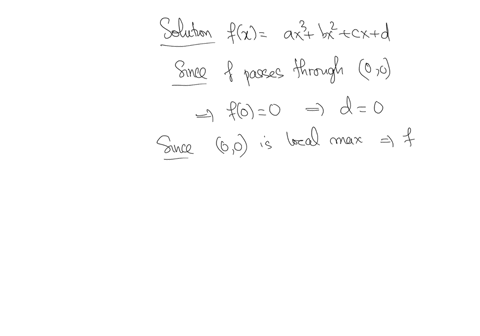 Solution f(x) = ax³ + bx² + cx + d
Since f passes through (0,0)
⇒ f(0) = 0 ⇒ d = 0
Since (0,0) is local max ⇒ f